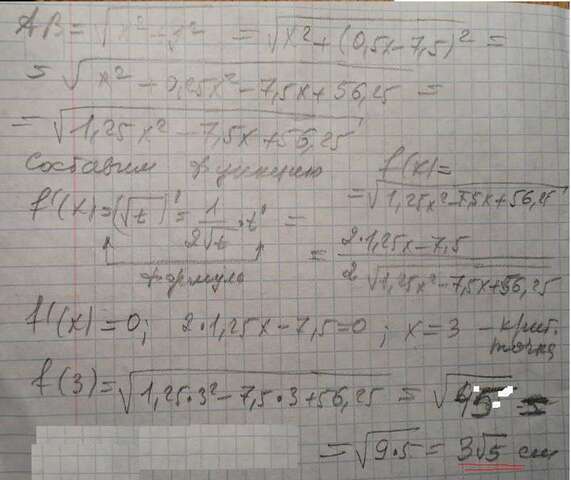 AB = √(x² - y²) = √(x² + (0,5x - 7,5)²) =
= √(x² + 0,25x² - 7,5x + 56,25) =
= √(1,25x² - 7,5x + 56,25)
Составим функцию f(x) =
= √(1,25x² - 7,5x + 56,25)
f'(x) = (√t)' = 1/(2√t) · t' =
формула
= (2·1,25x - 7,5)/(2√(1,25x² - 7,5x + 56,25))
f'(x) = 0; 2·1,25x - 7,5 = 0; x = 3 - крит. точка
f(3) = √(1,25·3² - 7,5·3 + 56,25) = √45 =
= √(9·5) = 3√5 см